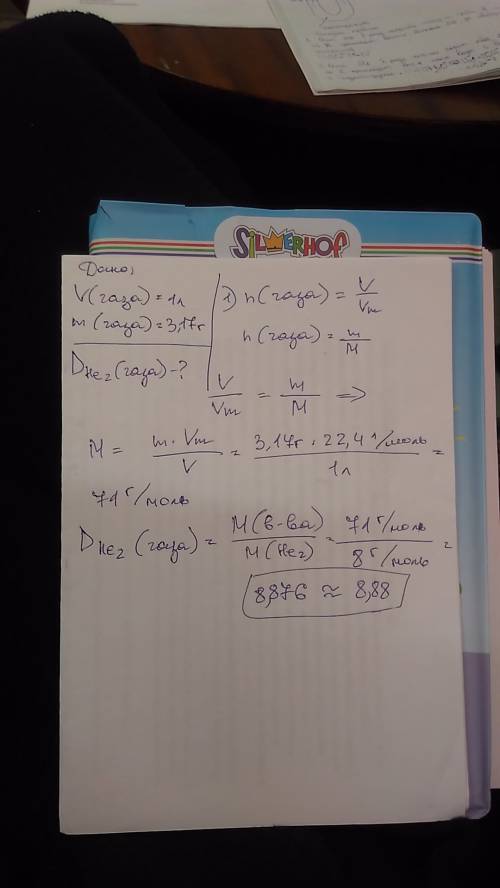 SILWERHOF
Дано,
V(газа) = 1л
m(газа) = 3,17г
D He2 (газа) - ?
1) n(газа) = V/Vm
n(газа) = m/M
V/Vm = m/M =>
M = m · Vm / V = 3,17г · 22,4 л/моль / 1л =
71 г/моль
D He2 (газа) = M(в-ва) / M(He2) = 71 г/моль / 8 г/моль =
8,876 ≈ 8,88